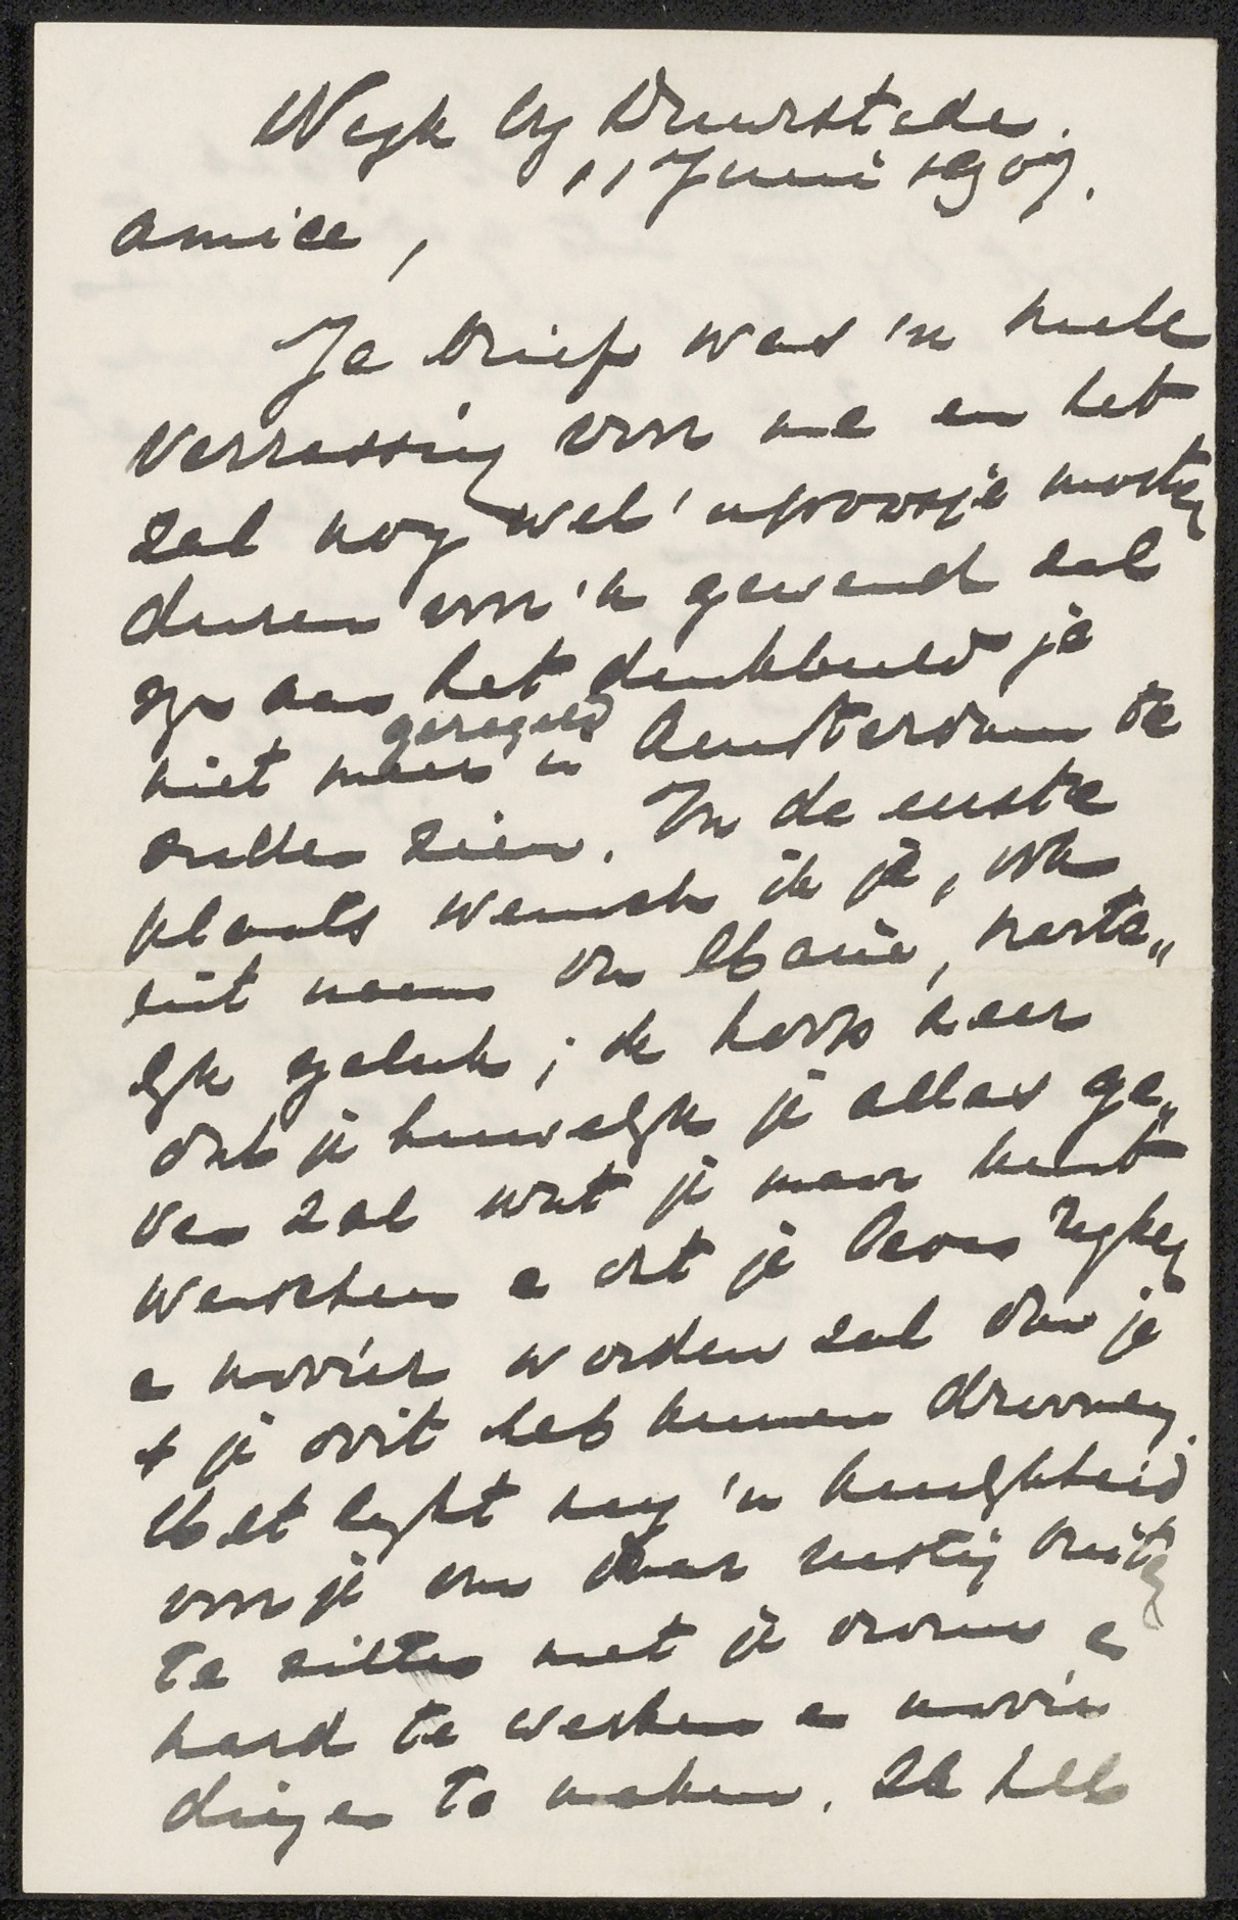 Wijk bij Duurstede.
11 Juni 1907.
Amice,
Je brief was 'n heele
verrassing voor me en het
zal nog wel 'n poosje moeten
duren voor 'k gewend zal
zijn aan het denkbeeld je
niet meer geregeld in Amsterdam te
zullen zien. In de eerste
plaats wensch ik je, ook
uit naam van Marie, harte„
lijk geluk; ik hoop zeer
dat je huwelijk je alles ge„
ven zal wat je maar kunt
wenschen en dat je leven rijker
en mooier worden zal dan je
't je ooit heb kunnen droomen.
Het lijkt mij 'n heerlijkheid
voor je om daar rustig buiten
te zitten met je vrouw en
hard te werken en mooie
dingen te maken. Ik heb